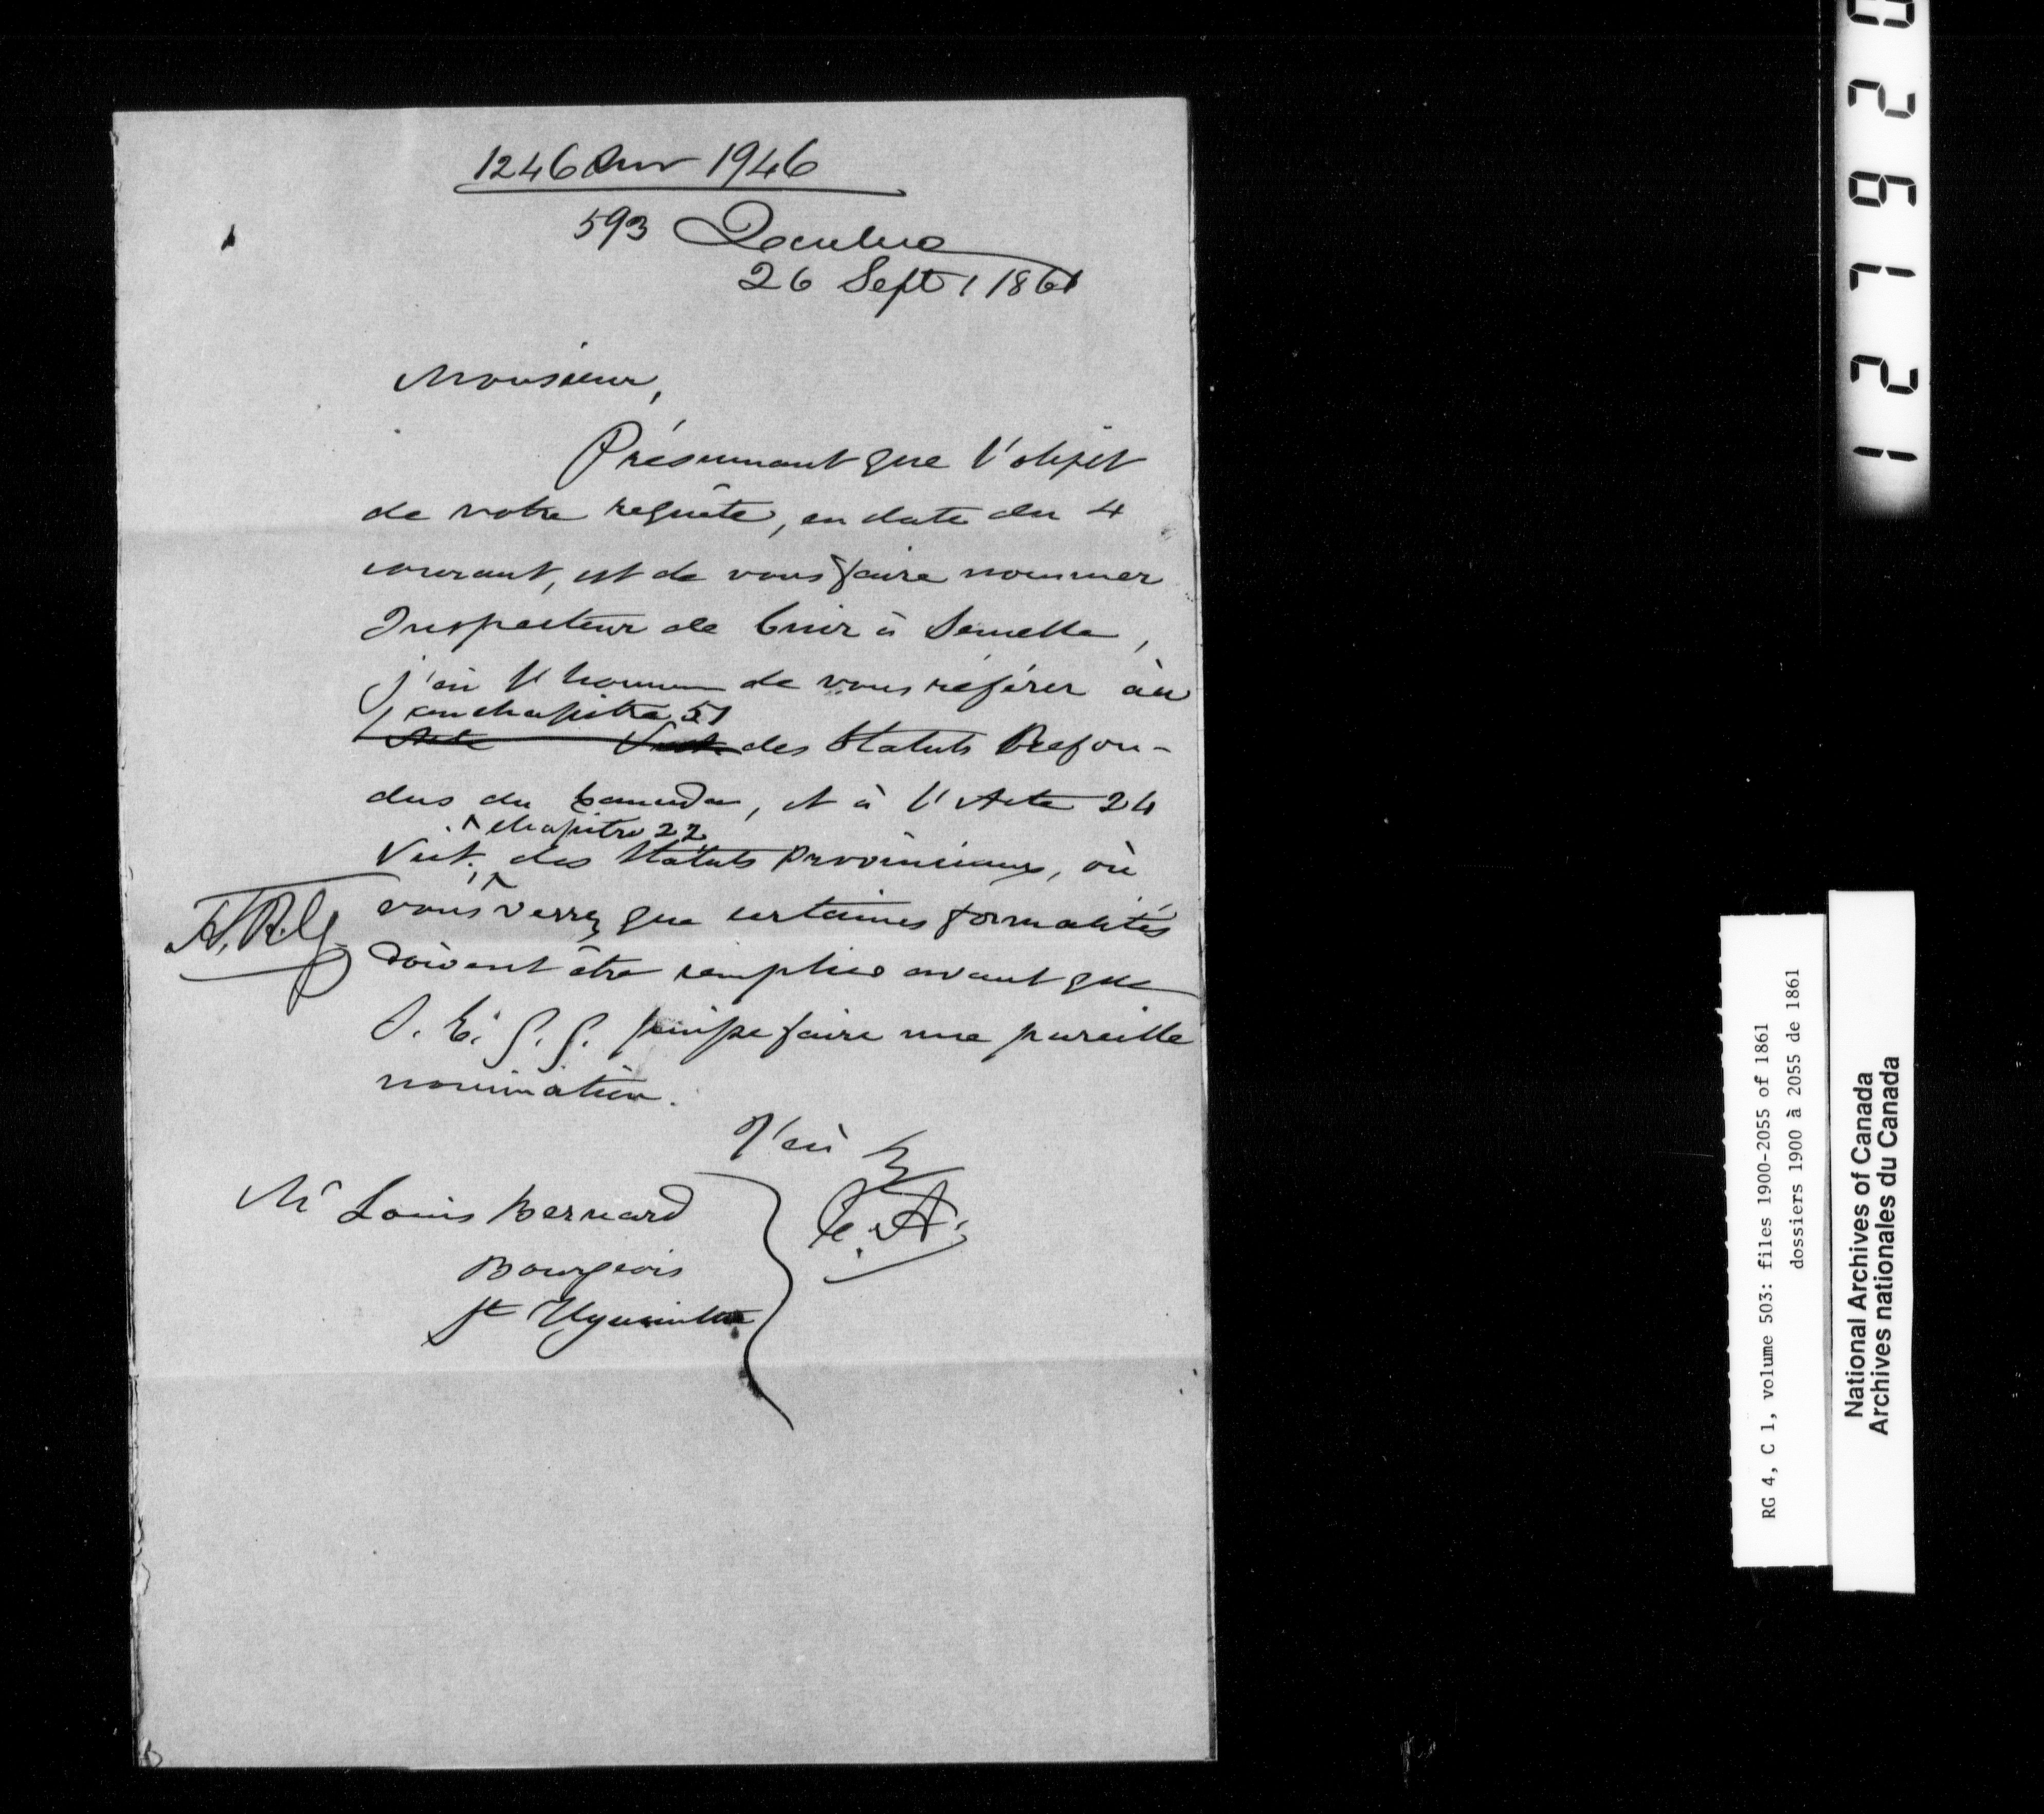 1246 Sur 1946
593 Quebec
26 Sept / 1861
Monsieur,
Présumant que l'objet
de votre requête, en date du 4
courant, est de vous faire nommer
Inspecteur de Cuir à Semelle,
j'ai l'honneur de vous référer au
au chapitre 51
Acte Vict. des Statuts Refon-
dus du Canada, et à l'Acte 24
chapitre 22
Vict. des Statuts Provinciaux, où
vous verrez que certaines formalités
doivent être remplies avant que
S. E. G. G. puisse faire une pareille
nomination.
J'ai
C. A.
Mr Louis Bernard
Bourgeois
St Hyacinthe
127920
RG 4, C 1, volume 503: files 1900-2055 of 1861
dossiers 1900 à 2055 de 1861
National Archives of Canada
Archives nationales du Canada